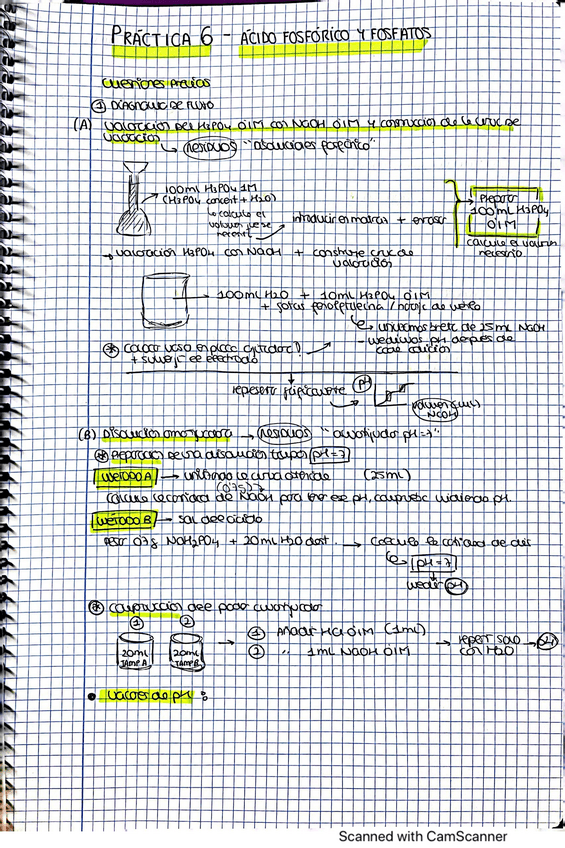 PRÁCTICA 6 - ÁCIDO FOSFÓRICO Y FOSFATOS
CUESTIONES PREVIAS
① DIAGRAMA DE FLUJO
(A) VALORACIÓN DEL H3PO4 0'1M CON NaOH 0'1M Y CONSTRUCCIÓN DE LA CURVA DE
VALORACIÓN
RESIDUOS "disoluciones
100ml H3PO4 1M
(H3PO4 concent + H2O)
calculo el
volumen que se
necesita
introducir en matraz + enrasar
Preparar
100ml H3PO4
0'1M
calculo el volumen
necesario
→ valoración H3PO4 con NaOH + construye curva de
valoración
100ml H2O + 10ml H3PO4 0'1M
+ gotas fenolftaleína / naranja de metilo
bureta de 25ml NaOH
- medimos pH después de
cada adición
* Colocar vaso en placa agitadora!
+ sumergir el electrodo
representar gráficamente pH
volumen
NaOH
(B) Disolución amortiguadora → RESIDUOS "amortiguador pH=7"
* Preparación de una disolución tampón pH=7
MÉTODO A → utilizando la curva obtenida (25ml)
Calcular la cantidad de NaOH para tener ese pH, comprobar midiendo pH.
MÉTODO B → sal del ácido
Pesar 0'7g NaH2PO4 + 20ml H2O dest. → Calcular la cantidad de
pH=7
medir pH
* Comprobación del poder amortiguador
① ②
20ml
TAMP A
20ml
TAMP B
① Añadir HCl 0'1M (1ml)
② " 1ml NaOH 0'1M
→ repetir solo
con H2O → pH
• Valores de pH :
Scanned with CamScanner